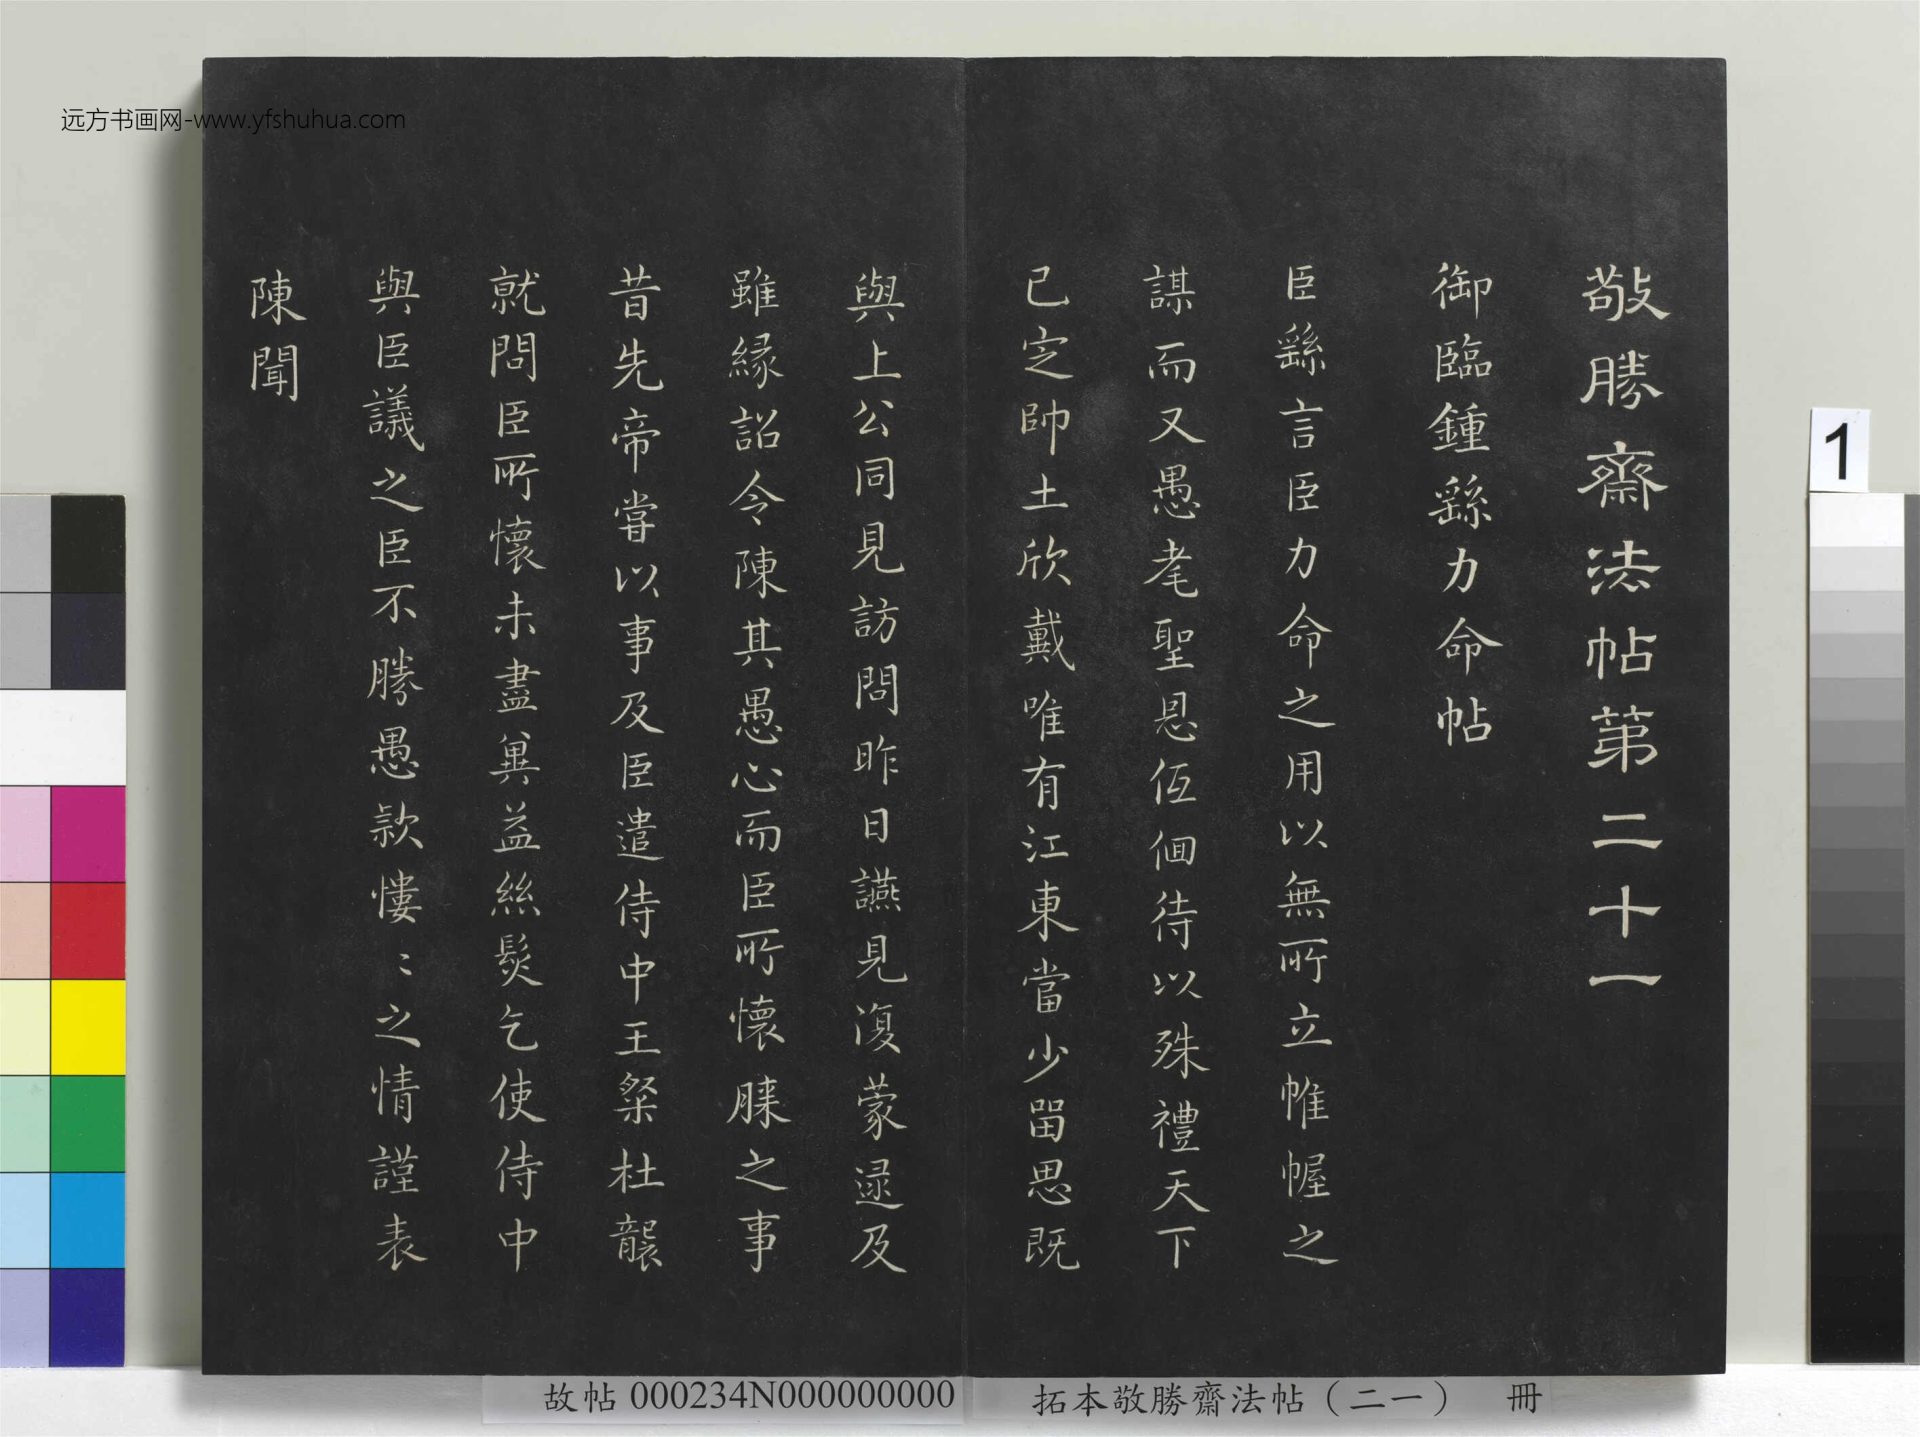 敬勝齋法帖第二十一
御臨鍾繇力命帖
臣繇言臣力命之用以無所立帷幄之
謀而又愚耄聖恩伍佪待以殊禮天下
已定帥土欣戴唯有江東當少留思既
與上公同見訪問昨日讌見復蒙逯及
雖緣詔令陳其愚心而臣所懷膝之事
昔先帝嘗以事及臣遣侍中王粲杜襲
就問臣所懷未盡冀益絲髮乞使侍中
與臣議之臣不勝愚款慺〻之情謹表
陳聞
远方书画网-www.yfshuhua.com
1
故帖 000234N000000000
拓本敬勝齋法帖（二一） 冊